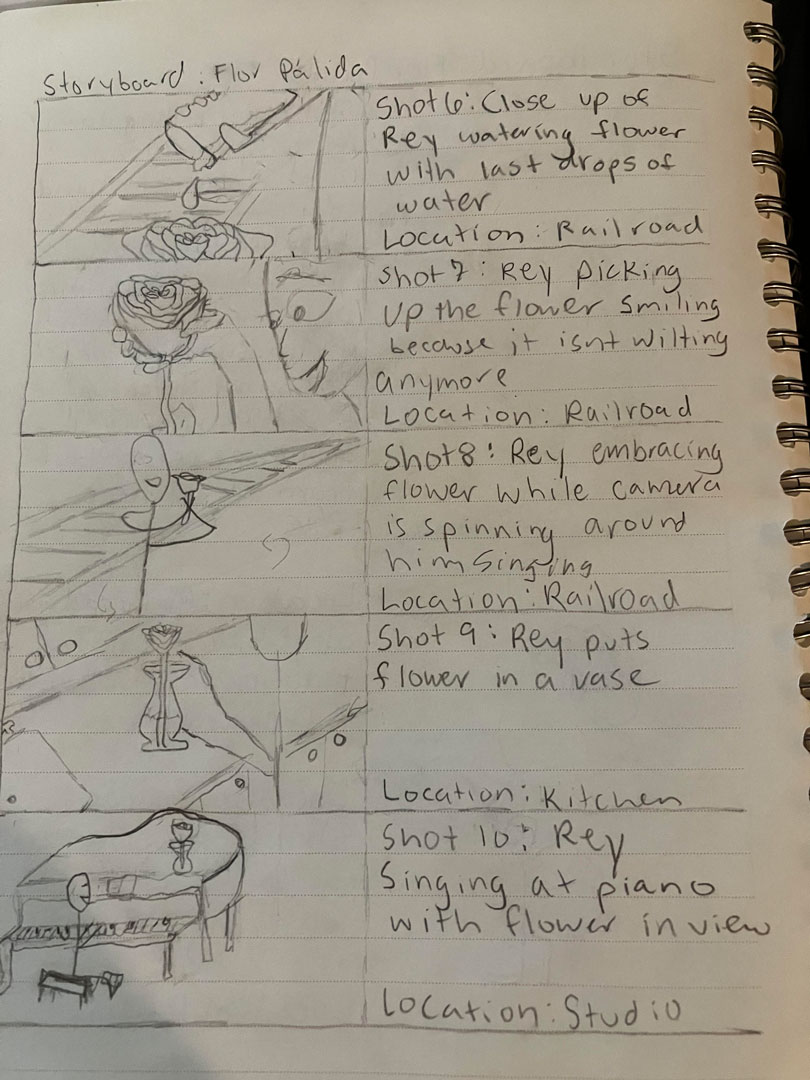 Storyboard: Flor Pálida
Shot 6: Close up of
Rey watering flower
with last drops of
water
Location: Railroad
Shot 7: Rey picking
up the flower smiling
because it isnt wilting
anymore
Location: Railroad
Shot 8: Rey embracing
flower while camera
is spinning around
him singing
Location: Railroad
Shot 9: Rey puts
flower in a vase
Location: Kitchen
Shot 10: Rey
Singing at piano
with flower in view
Location: Studio